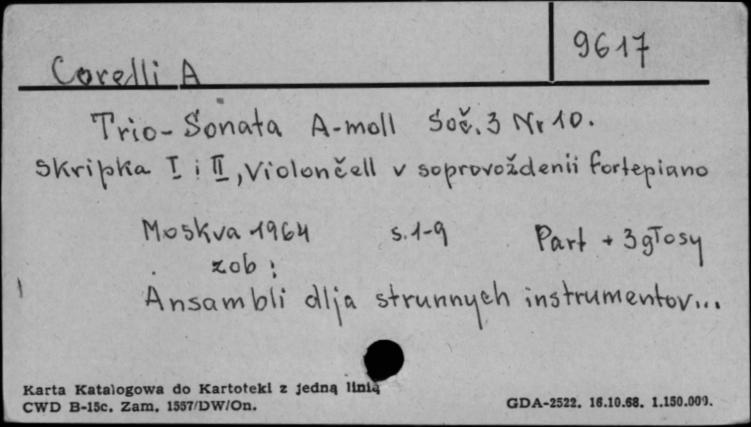 9617
Corelli A
Trio-Sonata A-moll Soč. 3 Nr 10.
Skripka I i II, Violončell v soprovoždenii fortepiano
Moskva 1964 s. 1-9 Part + 3 głosy
zob:
Ansambli dlja strunnych instrumentov...
Karta Katalogowa do Kartoteki z jedną linią
CWD B-15c. Zam. 1557/DW/On. GDA-2522. 16.10.68. 1.150.000.